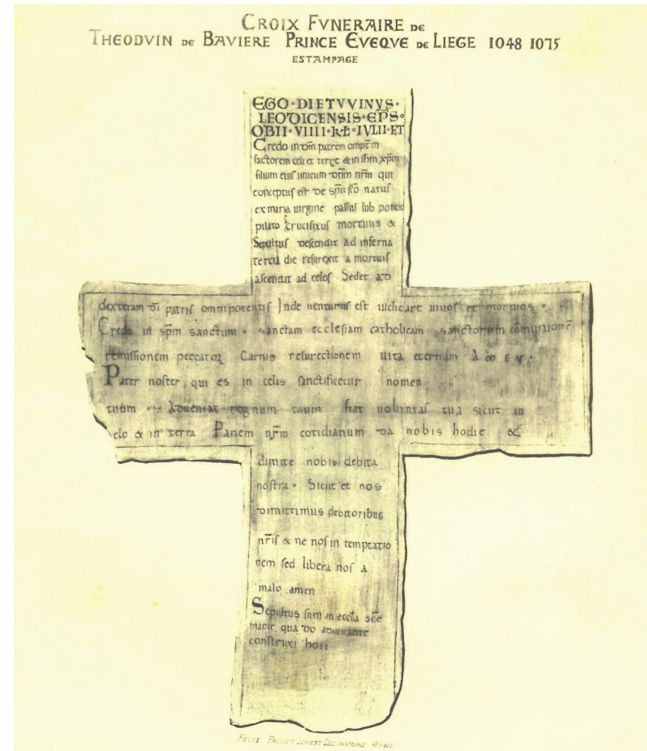 CROIX FVNERAIRE DE
THEODVIN DE BAVIERE PRINCE EVEQVE DE LIEGE 1048 1075
ESTAMPAGE
EGO·DIETVVINVS·
LEODICENSIS·EP̅S·
OBII·VIIII·KL̅·IVLII·ET
Credo in dm̅ patrem omp̅tm̅
factorem celi et terrę & in ihm̅ xp̅m
filium eius unicum dnm̅ nr̅m qui
conceptus est de sp̅u sc̅o natus
ex maria uirgine passus sub pontio
pilato Crucifixus mortuus &
Sepultus descendit ad inferna
tercia die resurexit a mortuis
ascendit ad celos Seder ad
dexteram di̅ patris omnipotentis Inde uenturus est iudicare uiuos et mortuos ·
Credo in sp̅m sanctum · sanctam ecclesiam catholicam sanctorum co̅munione̅
remissionem peccatoꝝ Carnis resurectionem uita eternam AMEN·
Pater noster qui es in celis sanctificetur nomen
tuum Adueniat regnum tuum fiat uoluntas tua sicut in
elo & in terra Panem nr̅m cotidianum da nobis hodie &
dimite nobis debita
nostra · Sicut et nos
dimittimus debitoribus
nr̅is & ne nos in temptatio
nem sed libera nos a
malo amen
Sepultus sum in eccl̅a sc̅e
marie, qua do adiuuante
construxi hoii